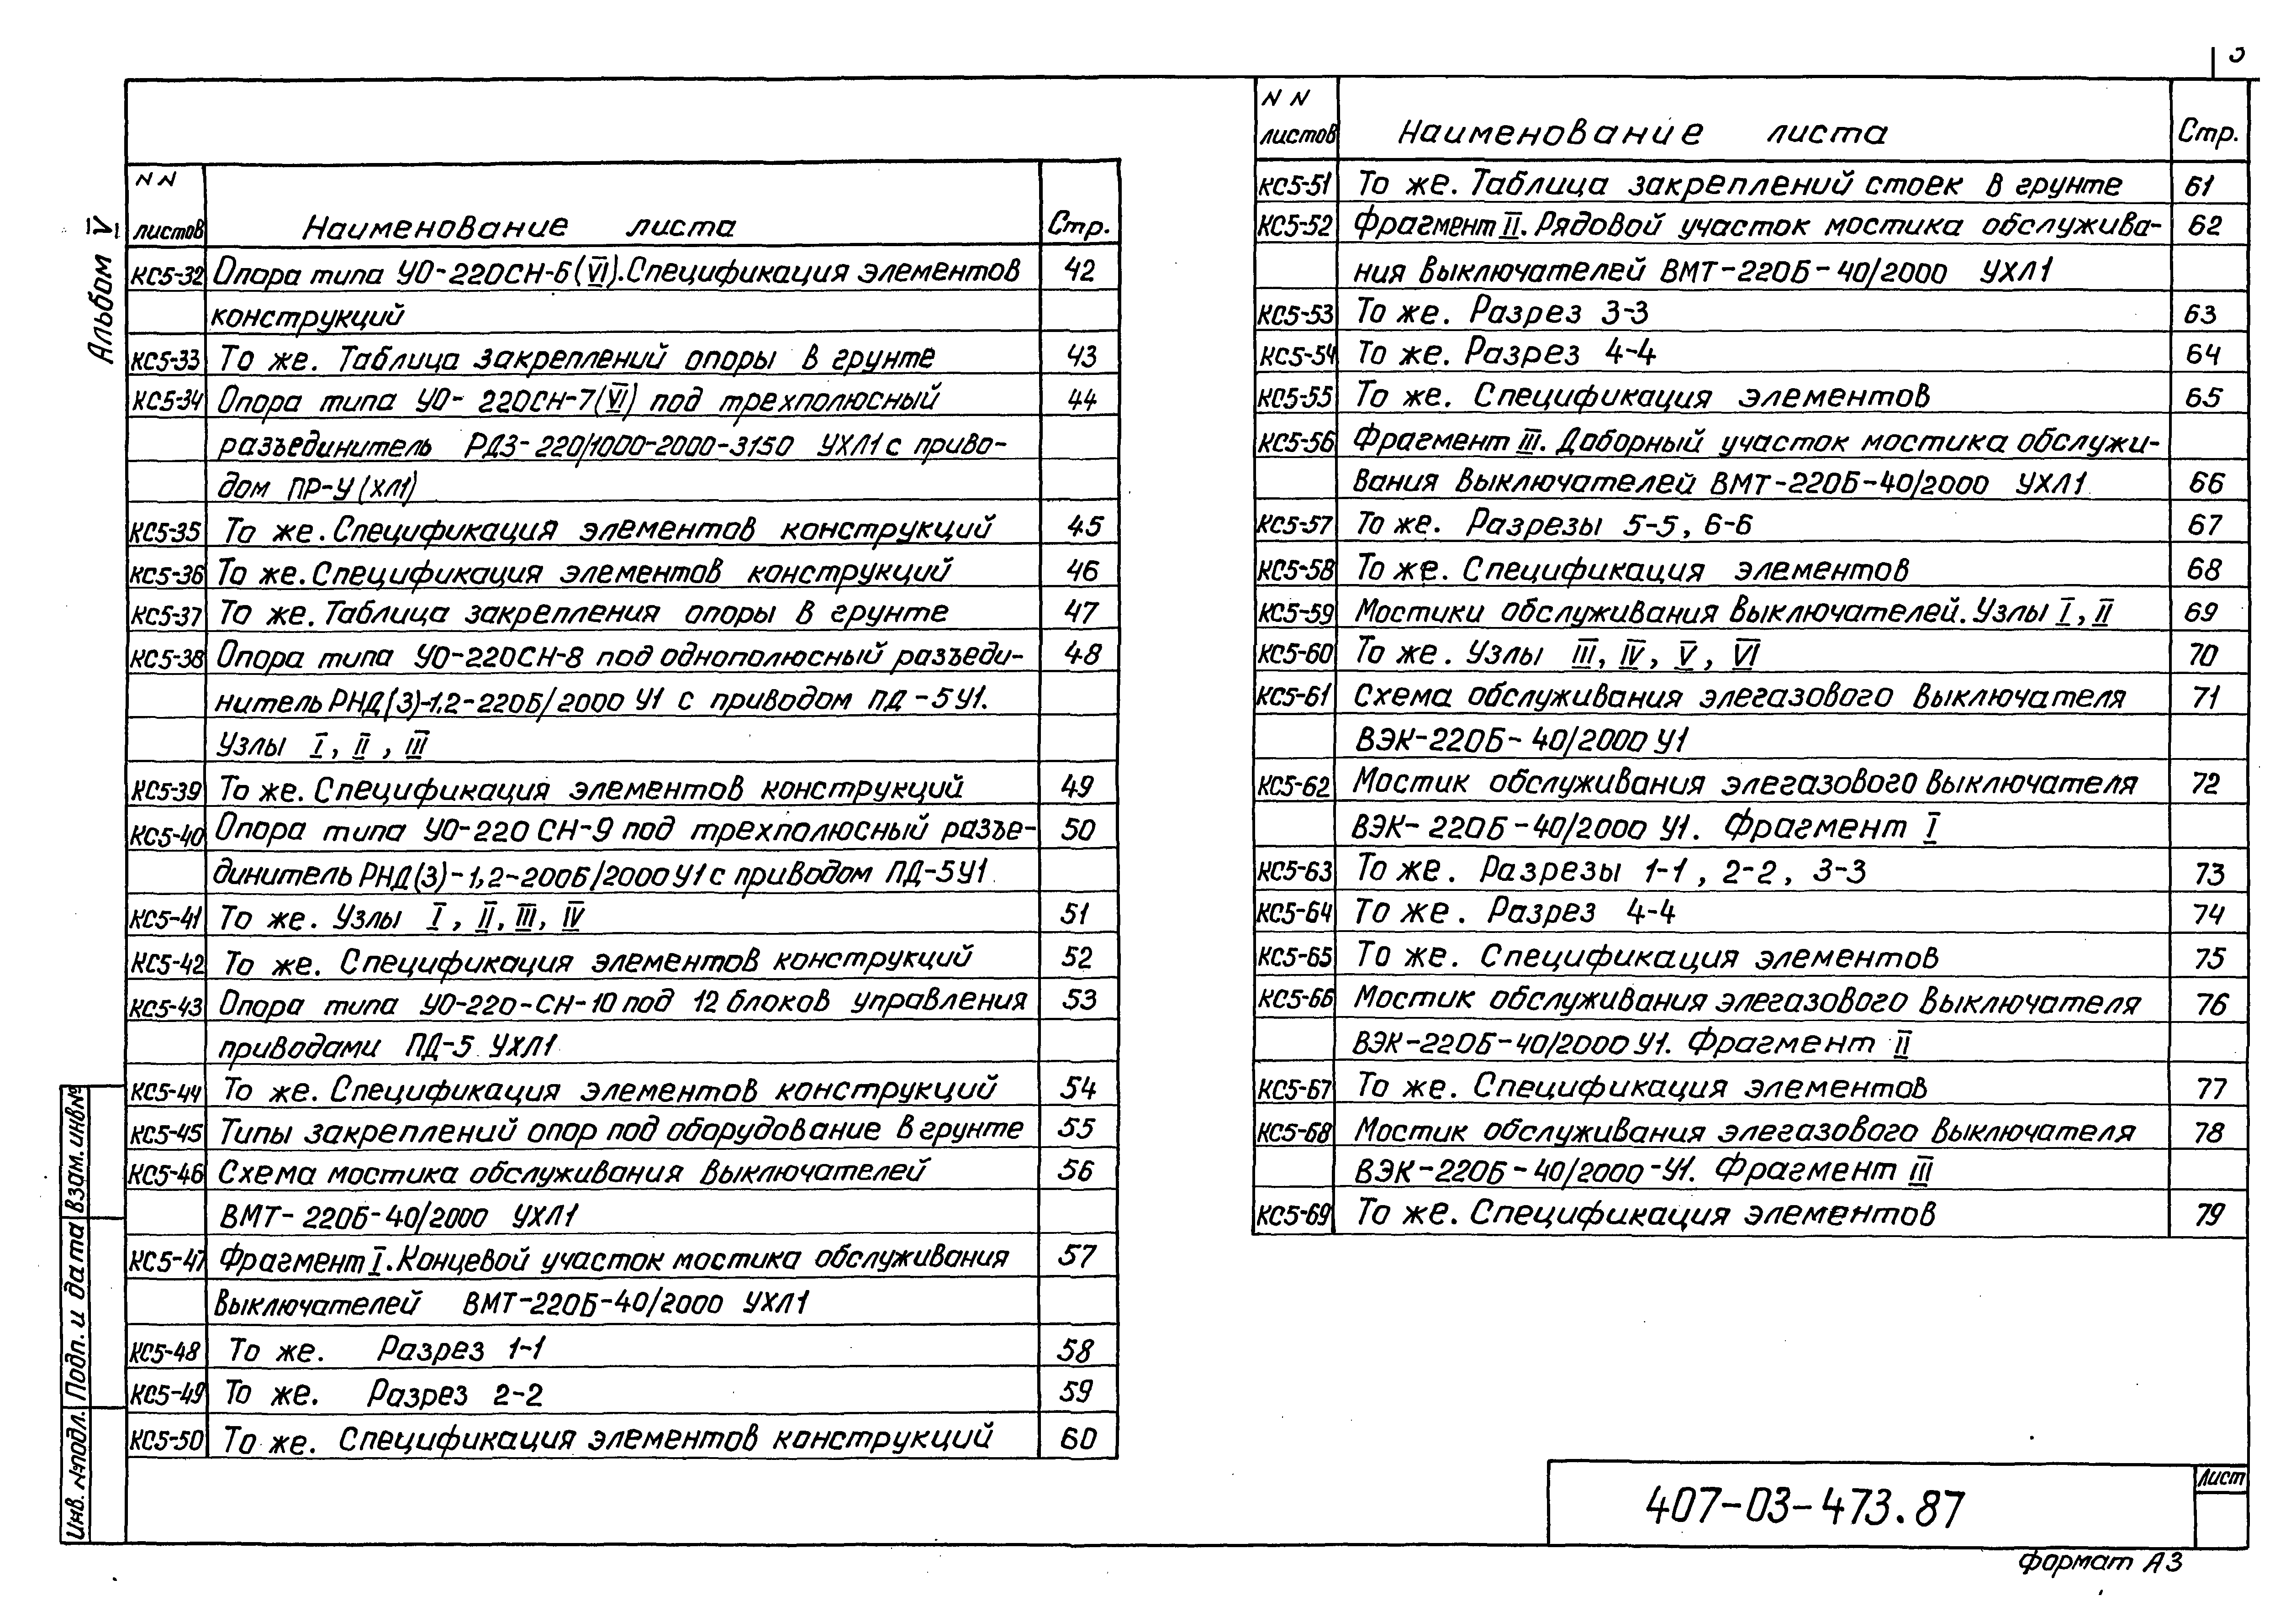 Альбом V
NN
листов Наименование листа Стр.
КС5-32 Опора типа УО-220СН-6(VI). Спецификация элементов 42
конструкций
КС5-33 То же. Таблица закреплений опоры в грунте 43
КС5-34 Опора типа УО-220СН-7(VI) под трехполюсный 44
разъединитель РДЗ-220/1000-2000-3150 УХЛ1 с приво-
дом ПР-У(ХЛ1)
КС5-35 То же. Спецификация элементов конструкций 45
КС5-36 То же. Спецификация элементов конструкций 46
КС5-37 То же. Таблица закрепления опоры в грунте 47
КС5-38 Опора типа УО-220СН-8 под однополюсный разъеди- 48
нитель РНД(З)-1.2-220Б/2000 У1 с приводом ПД-5У1.
Узлы I, II, III
КС5-39 То же. Спецификация элементов конструкций 49
КС5-40 Опора типа УО-220 СН-9 под трехполюсный разъе- 50
динитель РНД(З)-1,2-200Б/2000 У1 с приводом ПД-5У1
КС5-41 То же. Узлы I, II, III, IV 51
КС5-42 То же. Спецификация элементов конструкций 52
КС5-43 Опора типа УО-220-СН-10 под 12 блоков управления 53
приводами ПД-5 УХЛ1
КС5-44 То же. Спецификация элементов конструкций 54
КС5-45 Типы закреплений опор под оборудование в грунте 55
КС5-46 Схема мостика обслуживания выключателей 56
ВМТ-220Б-40/2000 УХЛ1
КС5-47 Фрагмент I. Концевой участок мостика обслуживания 57
выключателей ВМТ-220Б-40/2000 УХЛ1
КС5-48 То же. Разрез 1-1 58
КС5-49 То же. Разрез 2-2 59
КС5-50 То же. Спецификация элементов конструкций 60
NN
листов Наименование листа Стр.
КС5-51 То же. Таблица закреплений стоек в грунте 61
КС5-52 Фрагмент II. Рядовой участок мостика обслужива- 62
ния выключателей ВМТ-220Б-40/2000 УХЛ1
КС5-53 То же. Разрез 3-3 63
КС5-54 То же. Разрез 4-4 64
КС5-55 То же. Спецификация элементов 65
КС5-56 Фрагмент III. Доборный участок мостика обслужи-
вания выключателей ВМТ-220Б-40/2000 УХЛ1 66
КС5-57 То же. Разрезы 5-5, 6-6 67
КС5-58 То же. Спецификация элементов 68
КС5-59 Мостики обслуживания выключателей. Узлы I, II 69
КС5-60 То же. Узлы III, IV, V, VI 70
КС5-61 Схема обслуживания элегазового выключателя 71
ВЭК-220Б-40/2000 У1
КС5-62 Мостик обслуживания элегазового выключателя 72
ВЭК-220Б-40/2000 У1. Фрагмент I
КС5-63 То же. Разрезы 1-1, 2-2, 3-3 73
КС5-64 То же. Разрез 4-4 74
КС5-65 То же. Спецификация элементов 75
КС5-66 Мостик обслуживания элегазового выключателя 76
ВЭК-220Б-40/2000 У1. Фрагмент II
КС5-67 То же. Спецификация элементов 77
КС5-68 Мостик обслуживания элегазового выключателя 78
ВЭК-220Б-40/2000-У1. Фрагмент III
КС5-69 То же. Спецификация элементов 79
Инв. № подл. Подп. и дата Взам. инв №
407-03-473.87
Лист
Формат А3